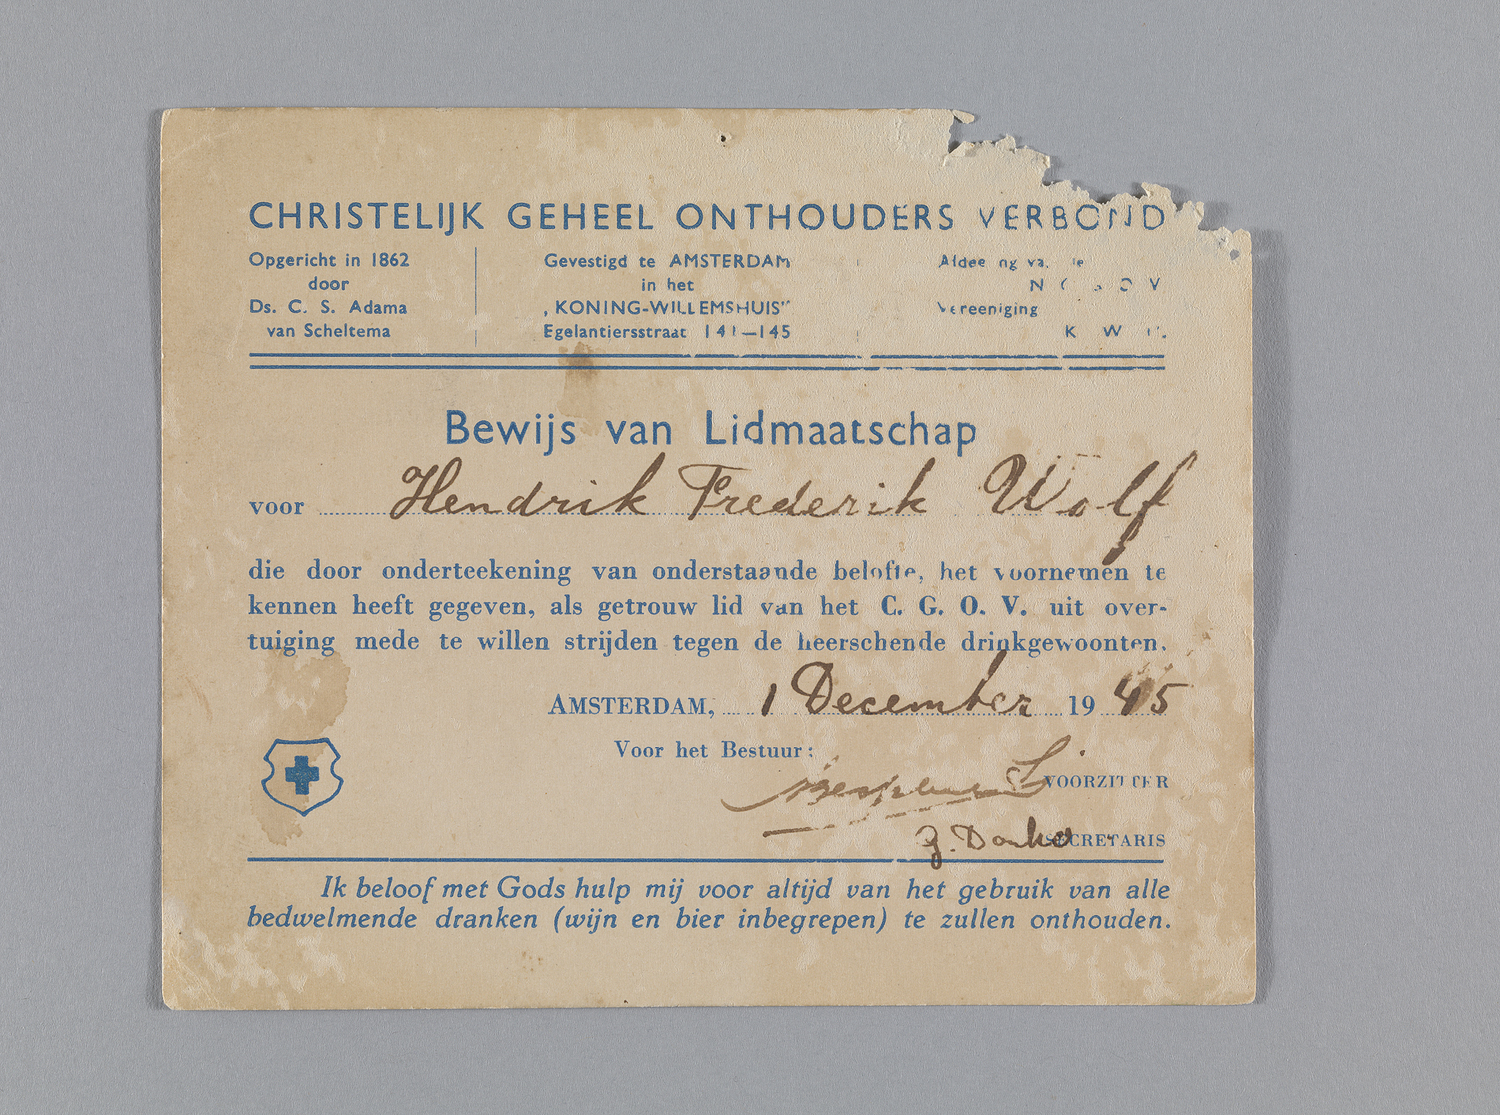 CHRISTELIJK GEHEEL ONTHOUDERS VERBOND
Opgericht in 1862
door
Ds. C. S. Adama
van Scheltema
Gevestigd te AMSTERDAM
in het
„KONING-WILLEMSHUIS”
Egelantiersstraat 141—145
Vereeniging
K W
Bewijs van Lidmaatschap
voor Hendrik Frederik Wolf
die door onderteekening van onderstaande belofte, het voornemen te
kennen heeft gegeven, als getrouw lid van het C. G. O. V. uit over-
tuiging mede te willen strijden tegen de heerschende drinkgewoonten.
AMSTERDAM, 1 December 1945
Voor het Bestuur:
VOORZITTER
SECRETARIS
Ik beloof met Gods hulp mij voor altijd van het gebruik van alle
bedwelmende dranken (wijn en bier inbegrepen) te zullen onthouden.